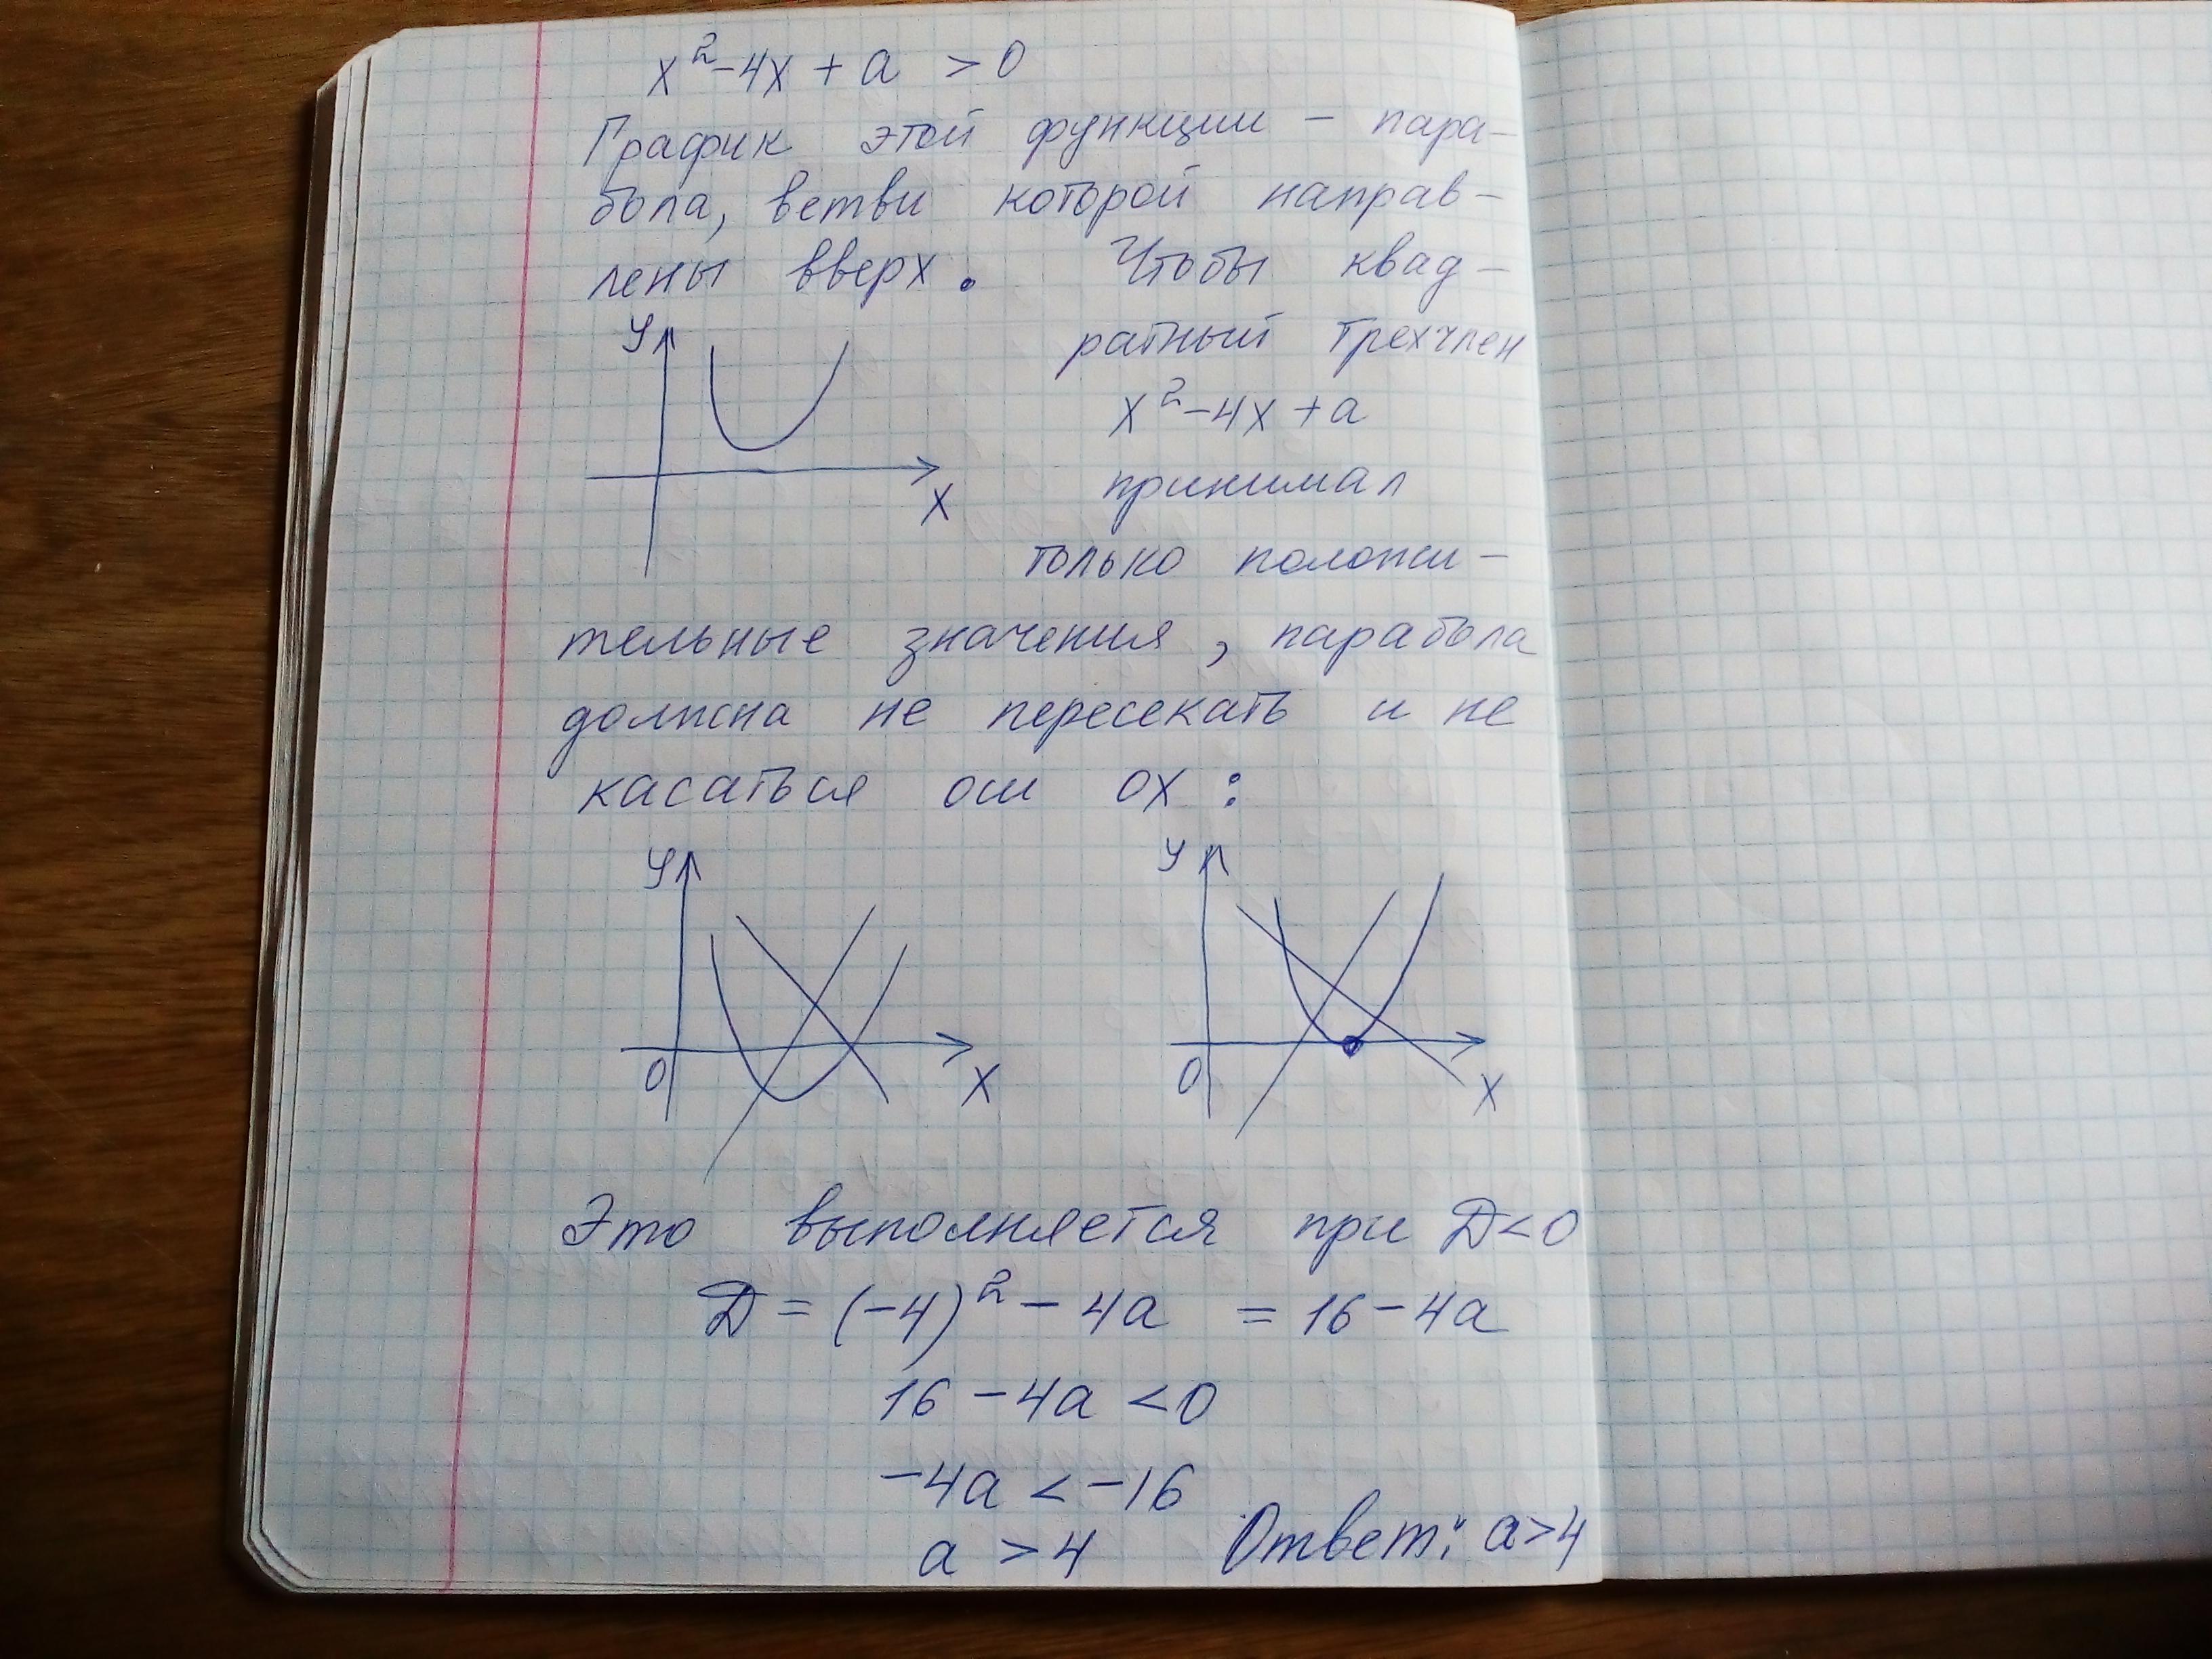 x²-4x + a > 0
График этой функции – пара-
бола, ветви которой направ-
лены вверх. Чтобы квад-
ратный трехчлен
y
x²-4x+a
x
принимал
только положи-
тельные значения, парабола
должна не пересекать и не
касаться оси ох :
y
0
x
y
0
x
Это выполняется при D<0
D = (-4)² - 4a = 16 - 4a
16 - 4a < 0
-4a < -16
a > 4 Ответ: a>4